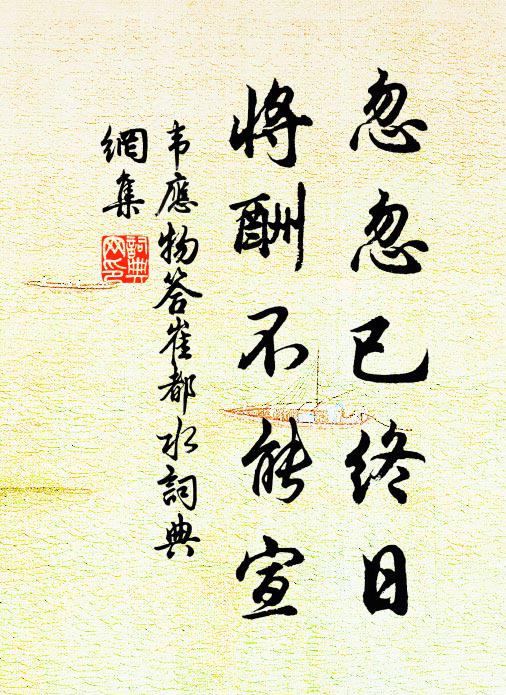 忽忽已终日
将酬不能宣
韦應物答崔都水詞典
網集
詞典
网印